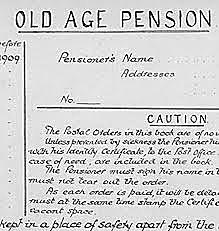 OLD AGE PENSION
before
1909
Pensioner's Name
Addresses
No.
CAUTION.
The Postal Orders in this book are of no v
Unless prevented by sickness the Pensioner mu
with his Identity Certificate, to the Post Office
case of need, are included in the book.
The Pensioner must sign his name in t
must not tear out the order.
As each order is paid, it will be detac
must at the same time stamp the Certific
vacant space.
kept in a place of safety apart from the